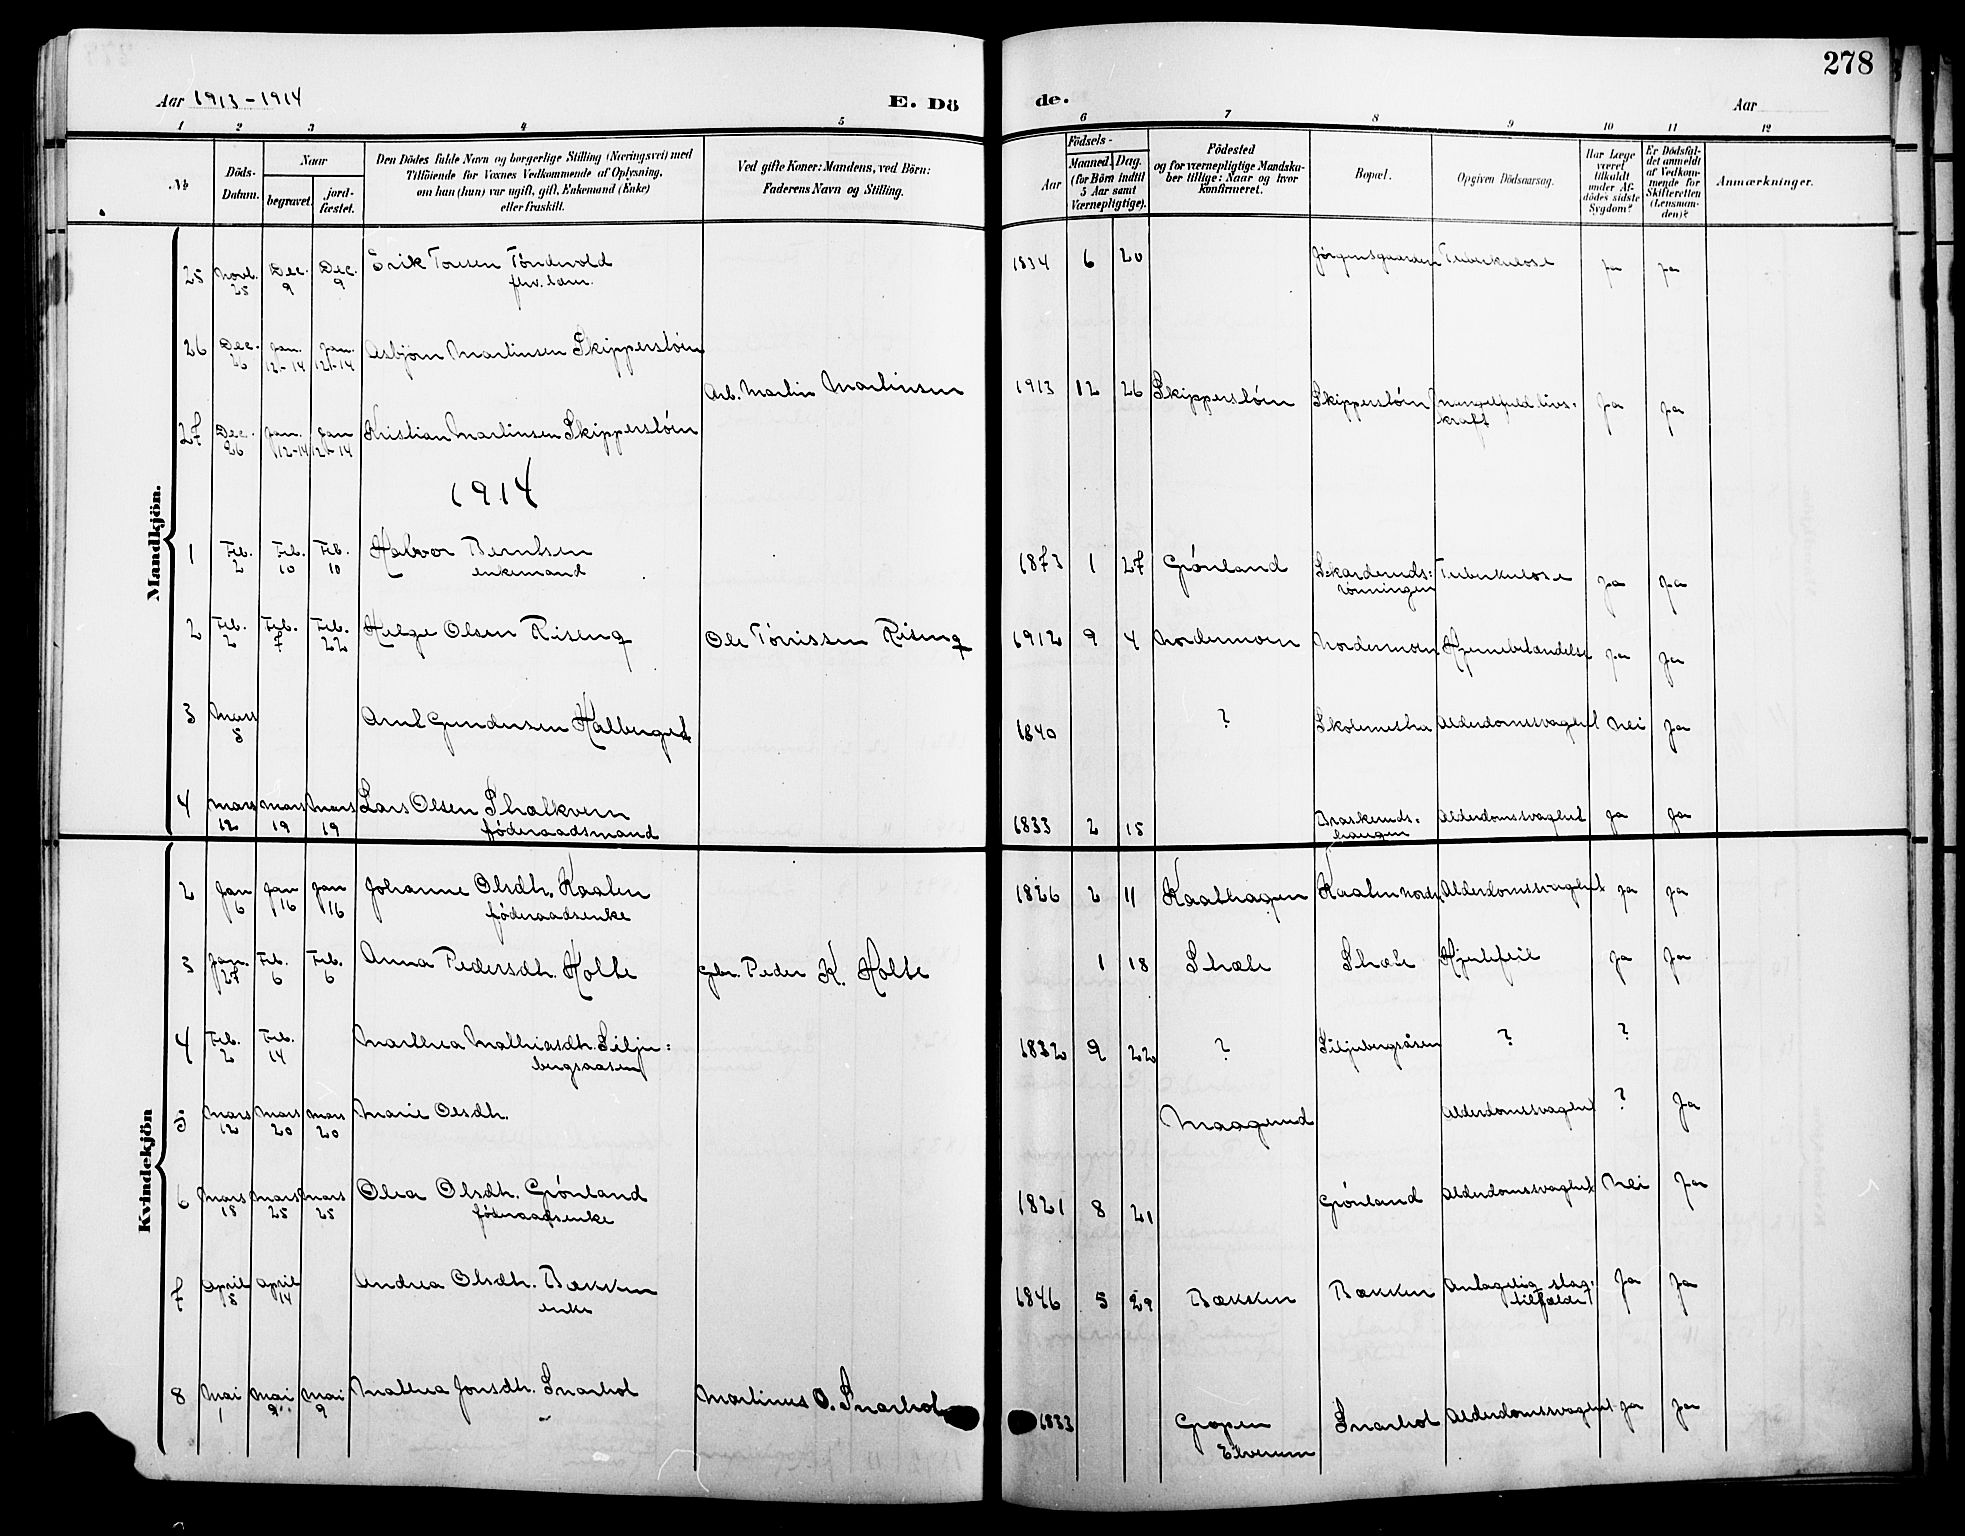 278
Aar 1913-1914
E. Dö
de.
Aar
1 2 3 4 5 6 7 8 9 10 11 12
№
Döds-Datum.
Naar
begravet.
jord-fæstet.
Den Dödes fulde Navn og borgerlige Stilling (Næringsvei) med
Tilföiende for Voxnes Vedkommende af Oplysning,
om han (hun) var ugift, gift, Enkemand (Enke)
eller fraskilt.
Ved gifte Koner: Mandens, ved Börn:
Faderens Navn og Stilling.
Födsels-
Aar
Maaned. Dag.
(for Börn indtil
5 Aar samt
Værnepligtige).
Födested
og for værnepligtige Mandska-
ber tillige: Naar og hvor
konfirmeret.
Bopæl.
Opgiven Dödsaarsag.
Har Læge
været
tilkaldt
under Af-
dödes sidste
Sygdom?
Er Dödsfal-
det anmeldt
af Vedkom-
mende for
Skifteretten
(Lensman-
den)?
Anmærkninger.
Mandkjön.
25 Novb. 25 Dec. 9 Dec. 9 Erik Tøndervold 1834 6 20 Jørgensgaarden Tuberkulose ja ja
26 Dec. 26 Jan. 12-14 Jan. 12-14 Asbjørn Martinsen Skippersløin
Arb. Martin Martinsen 1913 12 26 Skippersløin Skippersløin mangelfuld livs-
kraft ja ja
27 Dec. 26 Jan. 12-14 Jan 12-14 Kristian Martinsen Skippersløin
1914
1 Feb. 2 Feb. 10 Feb. 10 Halvor Berntsen
enkemand 1873 1 27 Grønland Skarderuds-
rønningen Tuberkulose ja ja
2 Feb. 2 Feb. 7 Feb. 22 Helge Olsen Riseng Ole Tønissen Riseng 1912 9 4 Nordermoen Nordermoen Hjernebetændelse ja ja
3 Mars 5 Gundersen 1840 ? Alderdomssvaghed Nei Ja
4 Mars 12 Mars 19 Mars 19 Lars Olsen
føderaadsmand 1833 2 15 Braskeruds-
haugen Alderdomssvaghet Ja Ja
Kvindekjön
2 Jan 6 Jan 16 Jan 16 Johanne Olsdh. Kaaten
føderaadsenke 1826 2 11 Kaathagen Kaaten nordr. Alderdomssvaghet ja ja
3 Jan. 27 Feb. 6 Feb. 6 Anna Pedersdh. Holte Gbr. Peder K. Holte 1 18 Hjertefeil ja ja
4 Feb. 2 Feb. 14 Marthea Mathiasdh. Silju-
bergsaasen 1832 9 22 ? Siljubergsåsen ? ?
5 Mars 12 Mars 20 Mars 20 Marie Olsdh. Maagerud Alderdomssvaghet ? Ja
6 Mars 18 Mars 25 Mars 25 Olea Olsdh. Grønland
føderaadsenke 1821 8 21 Grønland Alderdomssvaghet Nei Ja
7 April 5 April 14 Andrea Olsdh. Bækken
enke 1846 5 29 Bækken Bækken Antagelig slag-
tilfælde Ja Ja
8 Mai 1 Mai 9 Mai 9 Mathea Jonsdh. Snarhol Martinus O. Snarhol 1833 Gropen
Elverum Snarhol Alderdomssvaghet ja ja